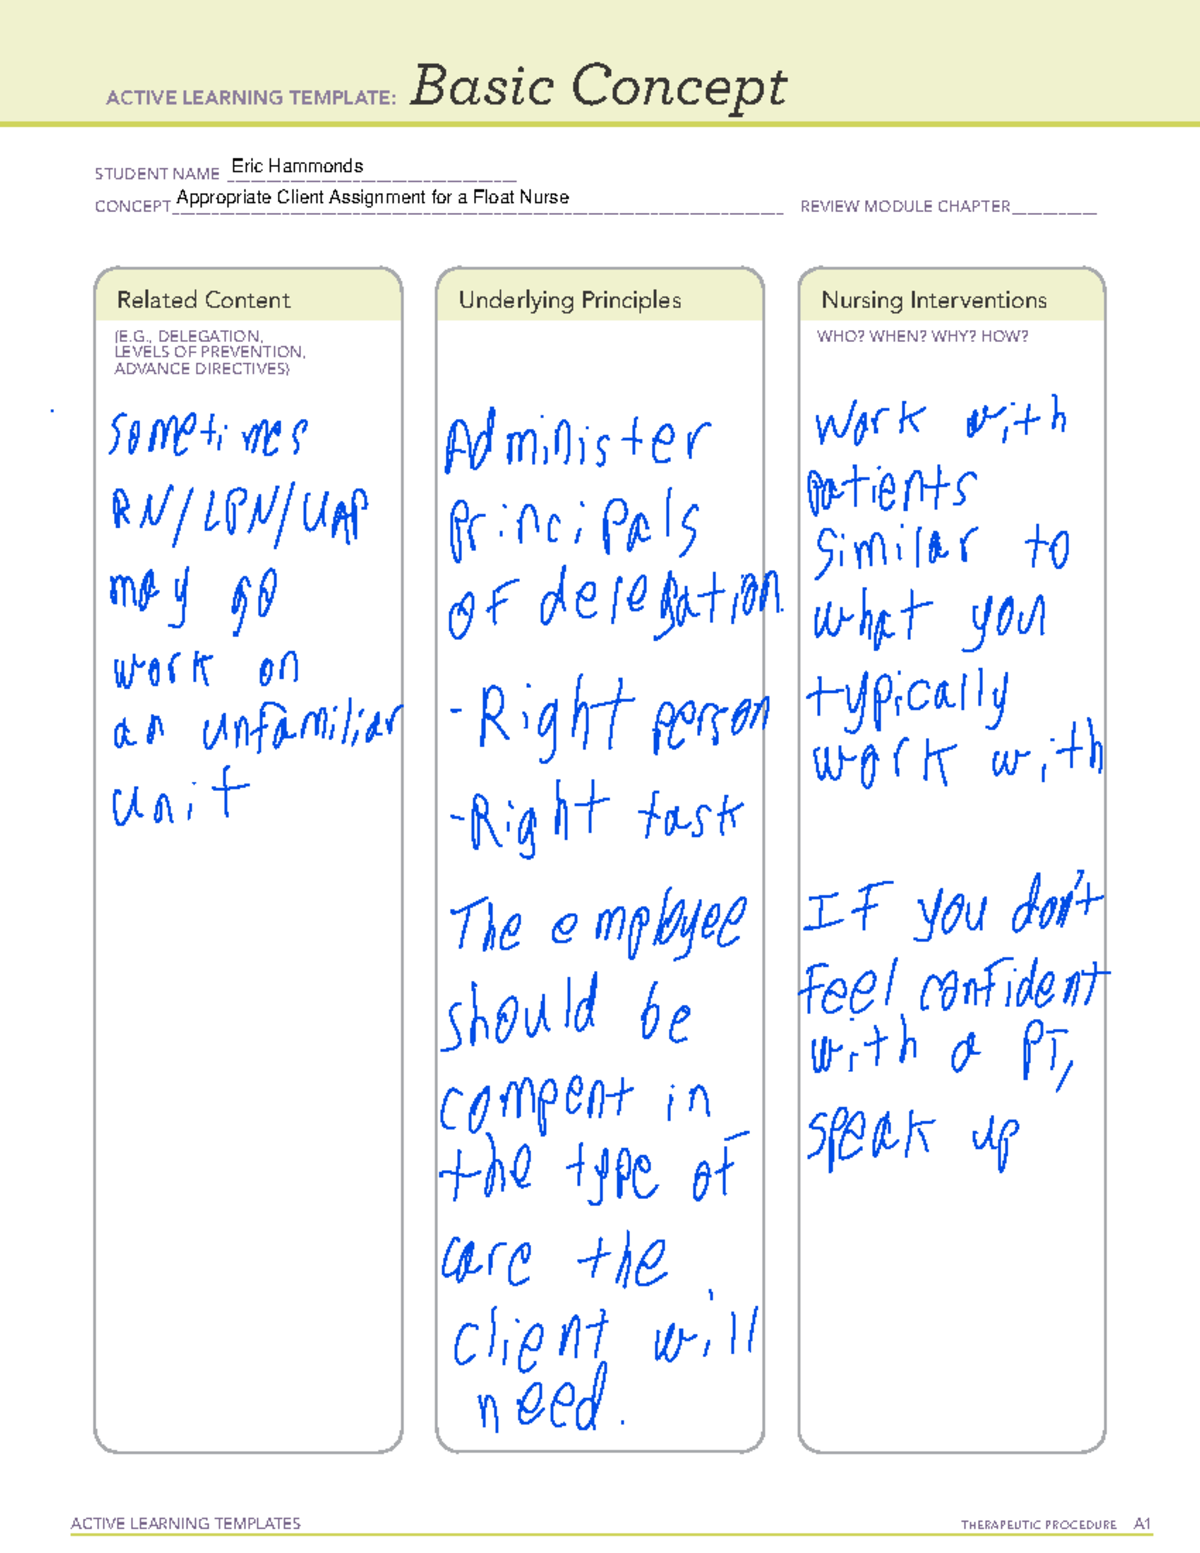 ACTIVE LEARNING TEMPLATE: Basic Concept
STUDENT NAME Eric Hammonds
CONCEPT Appropriate Client Assignment for a Float Nurse REVIEW MODULE CHAPTER
Related Content
(E.G., DELEGATION,
LEVELS OF PREVENTION,
ADVANCE DIRECTIVES)
Sometimes
RN/LPN/UAP
may go
work on
an unfamiliar
unit
Underlying Principles
Administer
Principals
of delegation
-Right person
-Right task
The employee
should be
compent in
the type of
care the
client will
need.
Nursing Interventions
WHO? WHEN? WHY? HOW?
Work with
patients
similar to
what you
typically
work with
If you don't
feel confident
with a PT,
speak up
ACTIVE LEARNING TEMPLATES
THERAPEUTIC PROCEDURE A1